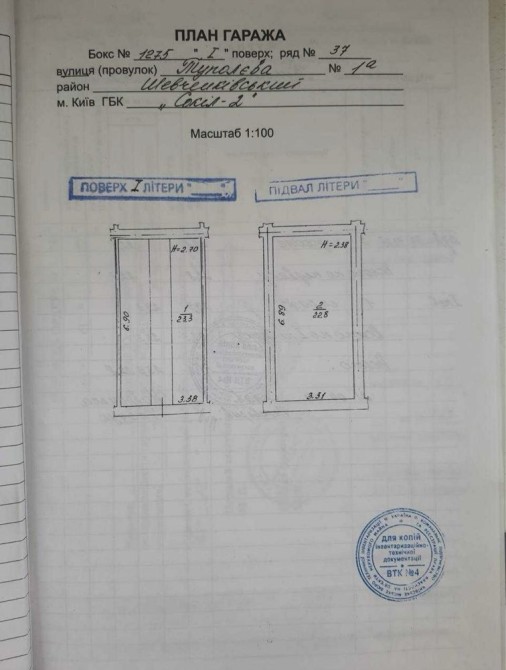 ПЛАН ГАРАЖА
Бокс № 1275 " I " поверх; ряд № 37
вулиця (провулок) Туполєва № 1а
район Шевченківський
м. Київ ГБК "Сокіл-2"
Масштаб 1:100
ПОВЕРХ I ЛІТЕРИ "____"
ПІДВАЛ ЛІТЕРИ "____"
H=2.70
6.90
1
23.3
3.38
H=2.38
6.89
2
20.8
3.31
ДЛЯ КОПІЙ
інвентаризаційно-
технічної
документації
ВТК №4